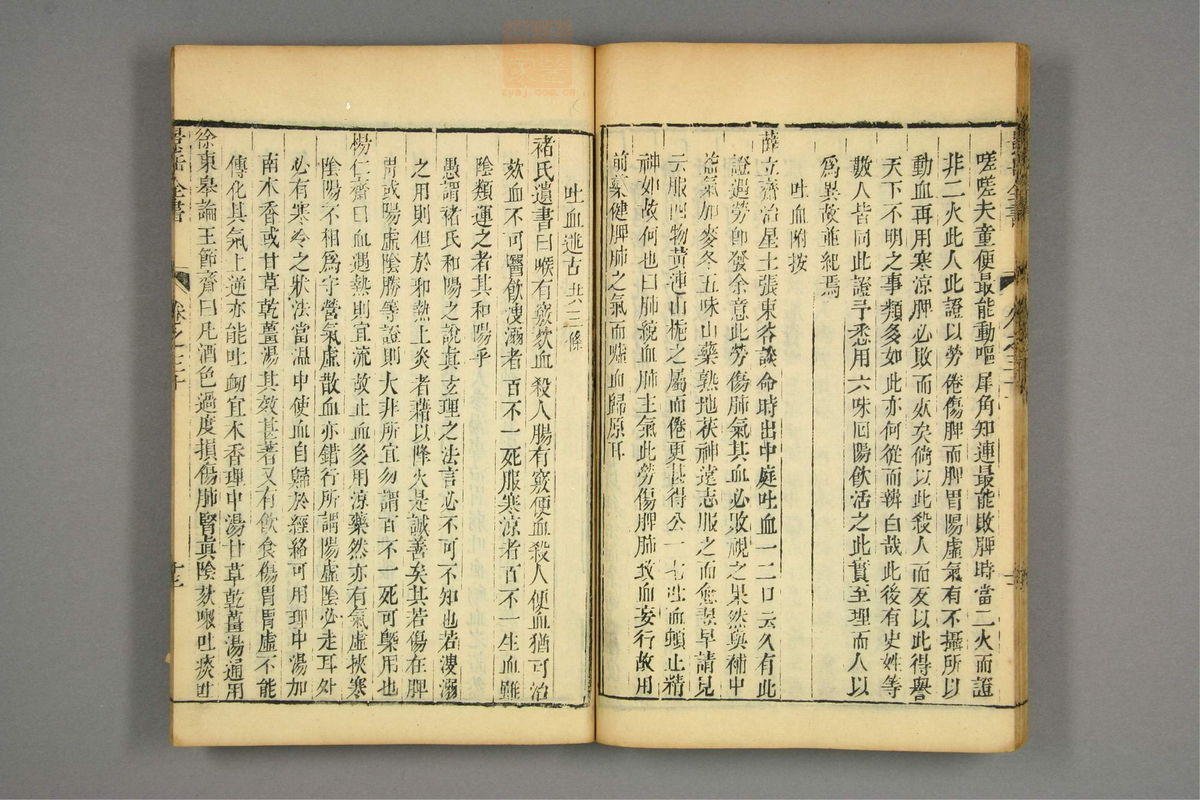 嗟嗟夫童便最能動嘔犀角知連最能敗脾時當二火而證
非二火此人此證以勞倦傷脾而脾胃陽虛氣有不攝所以
動血再用寒涼脾必敗而死矣倘以此殺人而反以此得譽
天下不明之事類多如此亦何從而辨白哉此後有史姓等
數人皆同此證予悉用六味回陽飲活之此實至理而人以
為異故並紀焉
吐血附按
薛立齋治星士張東谷談命時出中庭吐血一二口云久有此
證遇勞卽發余意此勞傷肺氣其血必散視之果然與補中
益氣加麥冬五味山藥熟地茯神遠志服之而愈翌早請見
云服四物黃連山梔之屬而倦更甚得公一匕吐血頓止精
神如故何也曰肺統血肺主氣此勞傷脾肺致血妄行故用
前藥健脾肺之氣而噓血歸原耳
吐血述古共三條
褚氏遺書曰喉有竅欬血殺人腸有竅便血殺人便血猶可治
欬血不可醫飲溲溺者百不一死服寒涼者百不一生血雖
陰類運之者其和陽乎
愚謂褚氏和陽之說眞玄理之法言必不可不知也若溲溺
之用則但於邪熱上炎者藉以降火是誠善矣其若傷在脾
胃或陽虛陰勝等證則大非所宜勿謂百不一死可槩用也
楊仁齋曰血遇熱則宜流故止血多用涼藥然亦有氣虛挾寒
陰陽不相為守營氣虛散血亦錯行所謂陽虛陰必走耳外
必有寒冷之狀法當溫中使血自歸於經絡可用理中湯加
南木香或甘草乾薑湯其效甚著又有飲食傷胃胃虛不能
傳化其氣上逆亦能吐衂宜木香理中湯甘草乾薑湯通用
徐東皋論王節齋曰凡酒色過度損傷肺腎眞陰欬嗽吐痰吐
景岳全書
卷之三十